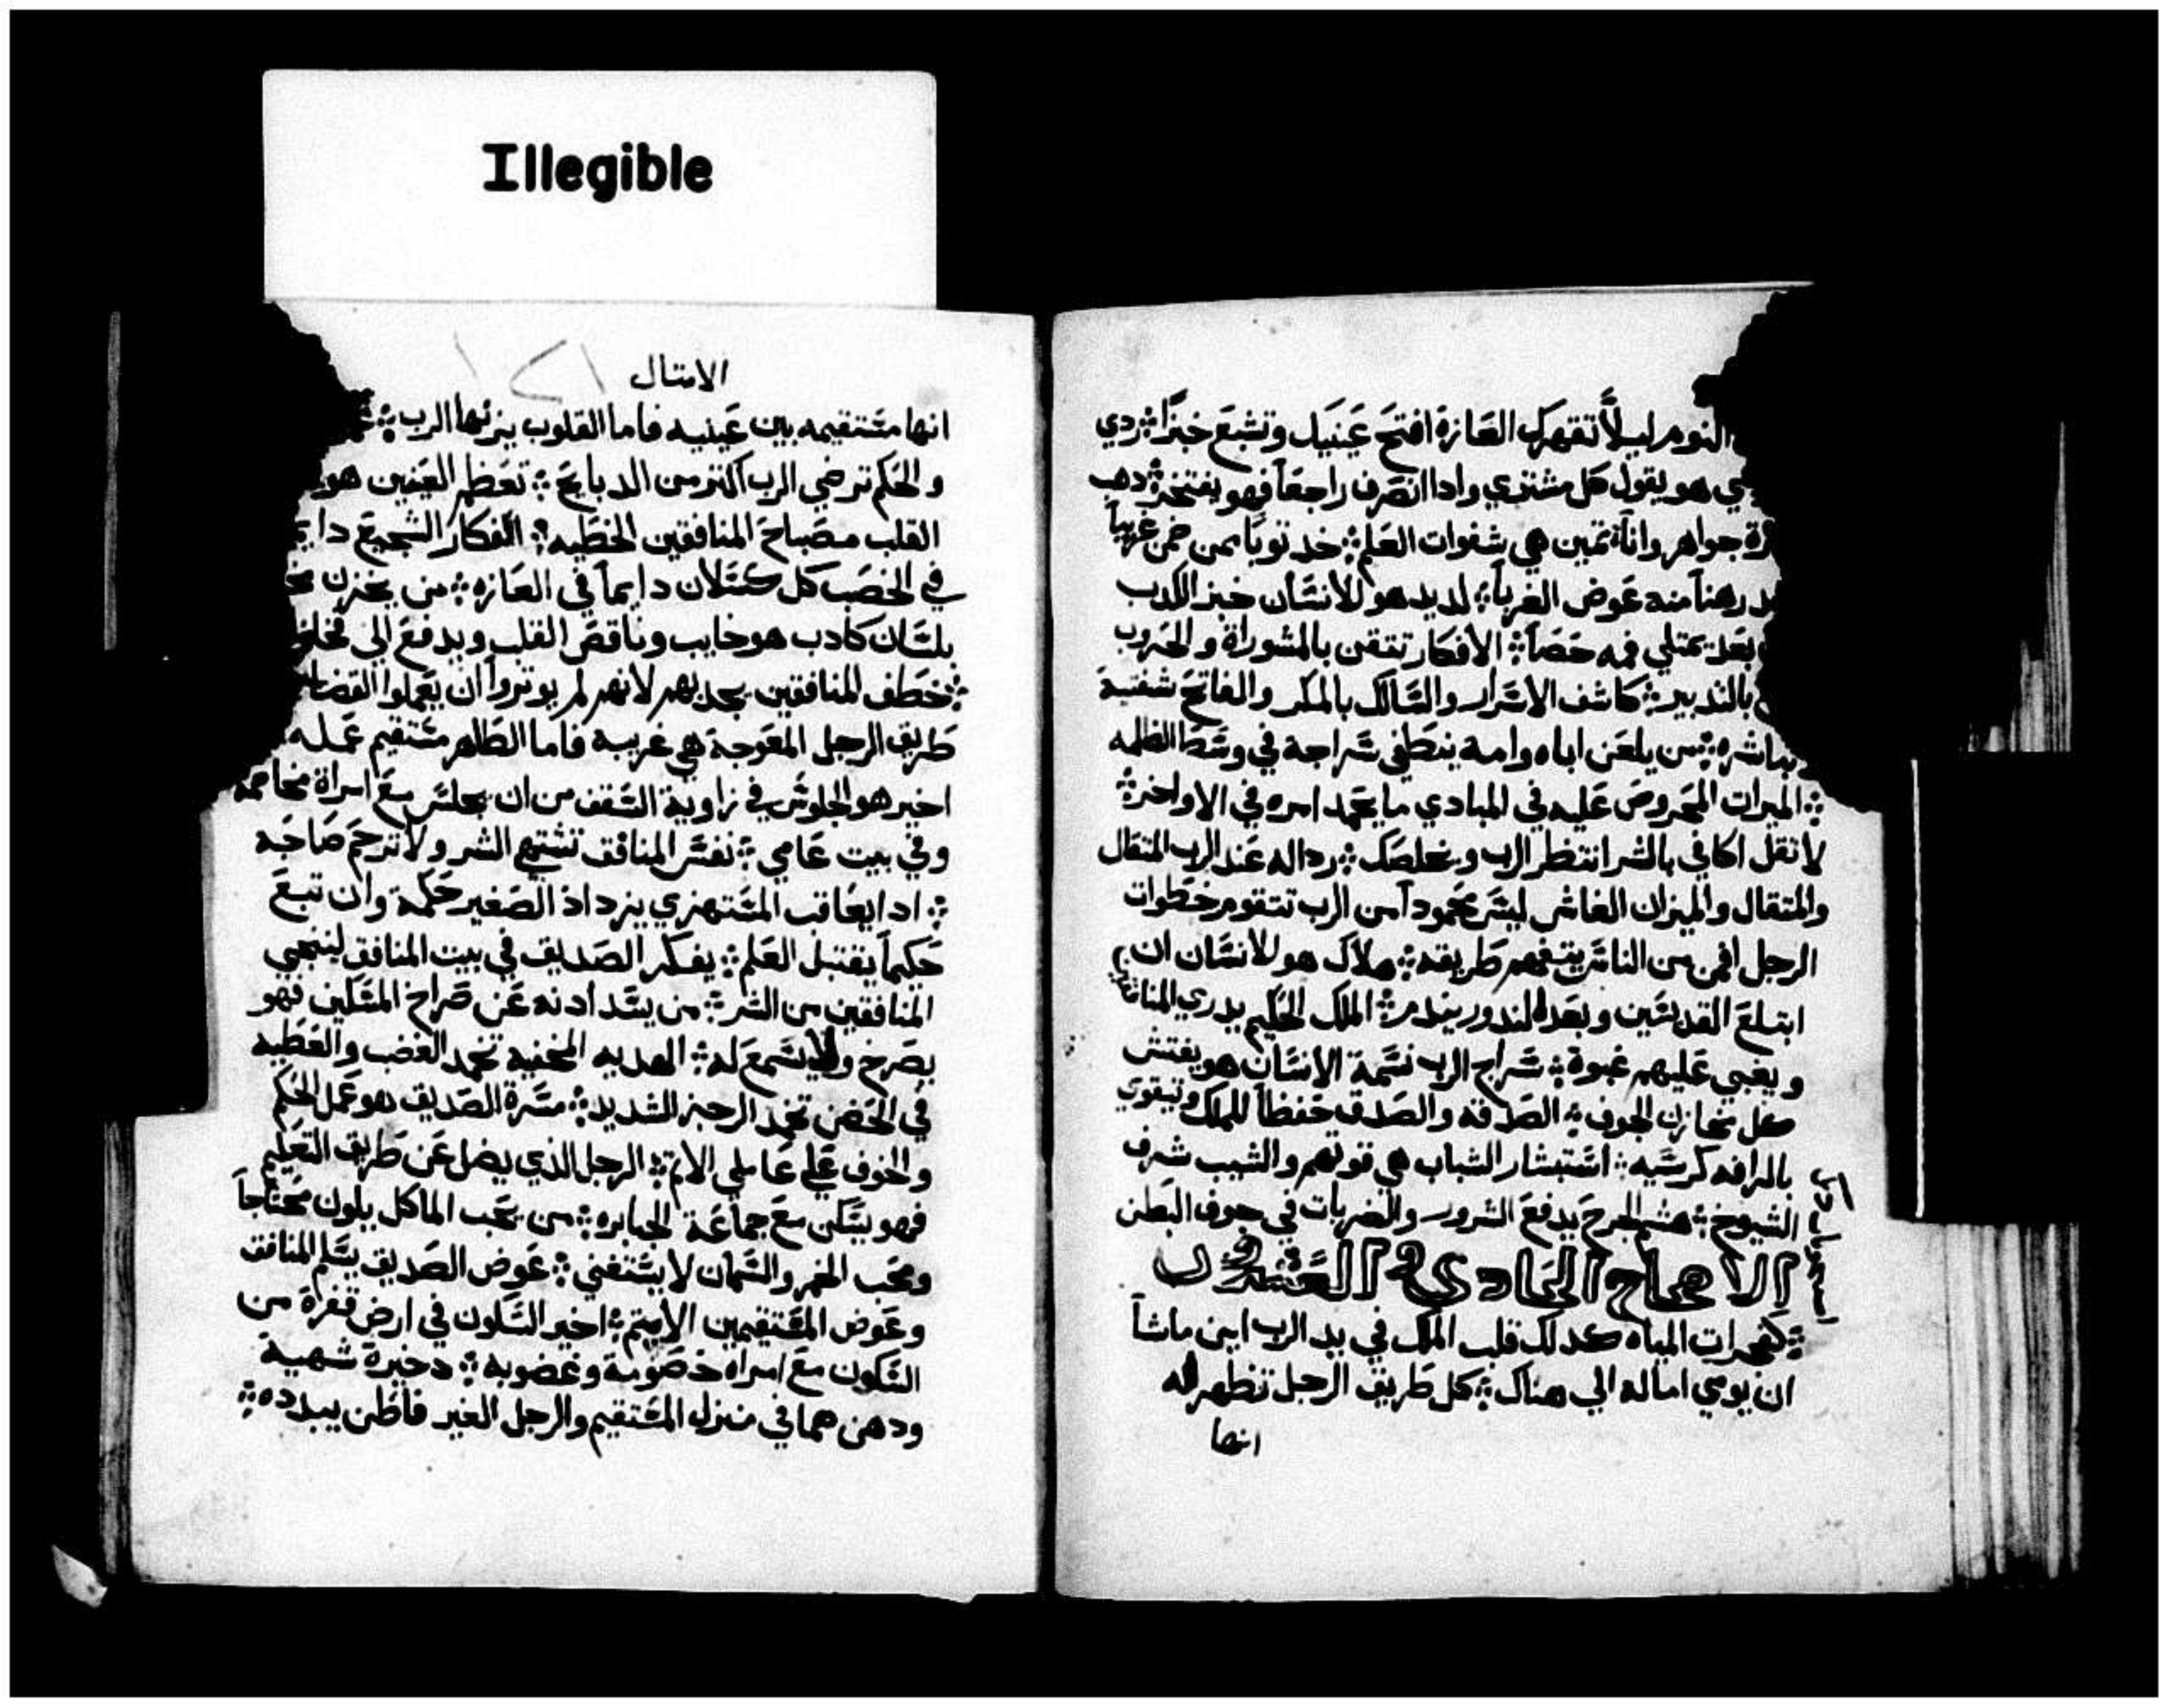 Illegible
النوم ليلا تقهرك العازة افتح عينيك وتشبع خبزا ۞ ردي
هو يقول كل مشتري واذا انصرف راجعا فهو يفتخر ۞ دهب
جواهر واناة تمين هي شفوات العلم ۞ خد توبا ممن ضمن غريبا
رهنا منه عوض الغربا ۞ لديد هو للانسان خبز الكدب
بعد يمتلي فمه حصا ۞ الافكار تتقن بالمشوراة والحروب
بالتدبير ۞ كاشف الاسرار والسالك بالمكر والفاتح شفتية
من يلعن اباه وامة ينطفي سراجة في وسط الظلمه
۞ الميرات المحروص عليه في المبادي ما يحمد امره في الاواخر ۞
لا تقل اكافي بالشر انتظر الرب ويخلصك ۞ رداله عند الرب المتقال
والمتقال والميزان الغاش ليس محمودا من الرب تتقوم خطوات
الرجل افمن من الناس يتفهم طريقه ۞ هلاك هو للانسان ان
ابتلع القديسين وبعده لندور يندم ۞ الملك الحكيم يدري
ويغبي عليهم غبوة ۞ سراج الرب نسمة الانسان هو يفتش
كل مخازن الجوف ۞ الصدقه والصدق حفظا للملك وتيقوي
بالرافه كرسيه ۞ استبشار الشباب هي قوتهم والشيب شرف
الشيوخ ۞ هشم الجرح يدفع الشرور والضربات في جوف البطن
الاصحاح الحادي و العشرون
۞ كفجرات المياه كدلك قلب الملك في يد الرب اين ماشا
ان يومي اماله الي هناك ۞ كل طريق الرجل تظهر له
انها
الامتال
انها مستقيمه بين عينيه فاما القلوب يزنها الرب ۞
والحكم ترضي الرب اكتر من الدبايح ۞ تعظم العينين هو
القلب مصباح المنافقين الخطيه ۞ افكار الشجيع
في الخصب كل كسلان دايما في العازه ۞ من يخزن
بلسان كادب هو خايب وناقص القلب ويدفع الي
۞ خطف المنافقين يجدبهم لانهم لم يوتروا ان يعملوا القضا
طريق الرجل المعوجة هي غريبة فاما الطاهر مستقيم عمله
اخير هو الجلوس في زاوية السقف من ان يجلس مع امراة مخاصمه
وفي بيت عامي ۞ نفس المنافق تشتهي الشر ولا ترحم صاحبه
۞ ادا يعاقب المستهزي يزداد الصغير حكمة وان تبع
حكيما يقتبل العلم ۞ يفكر الصديق في بيت المنافق لينجي
المنافقين من الشر ۞ من يسد ادنه عن صراخ المسكين فهو
يصرخ ولا يسمع له ۞ الهديه المخفية تخمد الغضب والعطيه
في الحضن تخمد الرجز الشديد ۞ مسرة الصديق هو عمل الحكم
والخوف علي عاملي الاتم ۞ الرجل الذي يضل عن طريق التعليم
فهو يسكن مع جماعة الجبابره ۞ من يحب الماكل يكون محتاجا
ومحب الخمر والسمان لا يستغني ۞ عوض الصديق يسلم المنافق
وعوض المستقيمين الاتيم ۞ اخير السكون في ارض قفرة من
السكون مع امراه خصومة وغضوبه ۞ دخيرة شهية
ودهن هما في منزل المستقيم والرجل الغير فاطن يبدده ۞